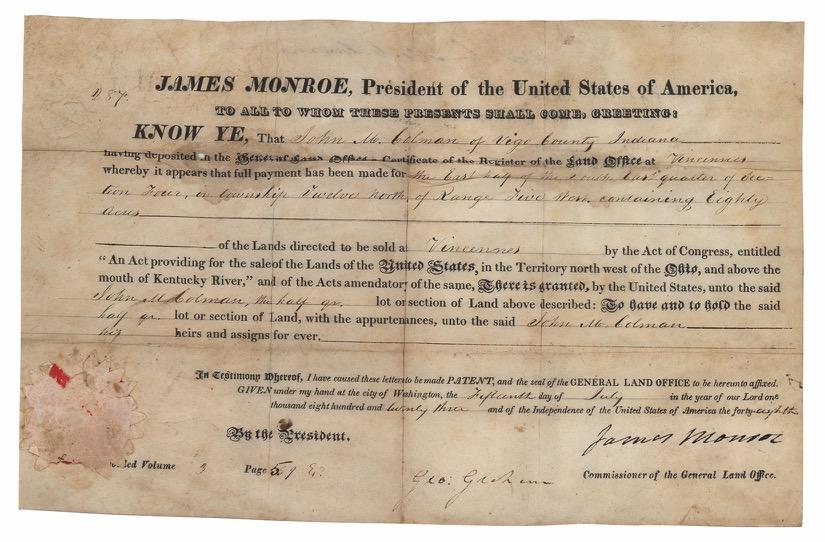 JAMES MONROE, President of the United States of America,
287.
TO ALL TO WHOM THESE PRESENTS SHALL COME, GREETING:
KNOW YE, That John M. Colman of Vigo County Indiana
having deposited in the General Land Office a Certificate of the Register of the Land Office at Vincennes
whereby it appears that full payment has been made for the East half of the South East quarter of Sec-
tion Four, in township Twelve north, of Range Five West, containing Eighty
Acres
of the Lands directed to be sold at Vincennes by the Act of Congress, entitled
"An Act providing for the sale of the Lands of the United States, in the Territory north west of the Ohio, and above the
mouth of Kentucky River," and of the Acts amendatory of the same, There is granted, by the United States, unto the said
John M. Colman, the half qr. lot or section of Land above described: To have and to hold the said
half qr. lot or section of Land, with the appurtenances, unto the said John M. Colman
his heirs and assigns for ever.
In Testimony Whereof, I have caused these letters to be made PATENT, and the seal of the GENERAL LAND OFFICE to be hereunto affixed.
GIVEN under my hand at the city of Washington, the Fifteenth day of July in the year of our Lord one
thousand eight hundred and twenty three and of the Independence of the United States of America the forty-eighth
By the President.
James Monroe
Volume 3 Page
Geo: Graham
Commissioner of the General Land Office.